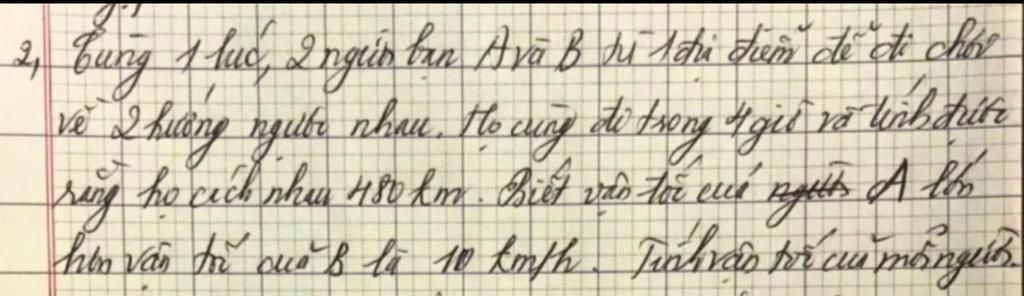 2, Cùng 1 lúc, 2 người bạn A và B từ 1 địa điểm để đi chơi
về 2 hướng ngược nhau. Họ cùng đi trong 4 giờ và tính được
rằng họ cách nhau 480 km. Biết vận tốc của A lớn
hơn vận tốc của B là 10 km/h. Tính vận tốc của mỗi người.